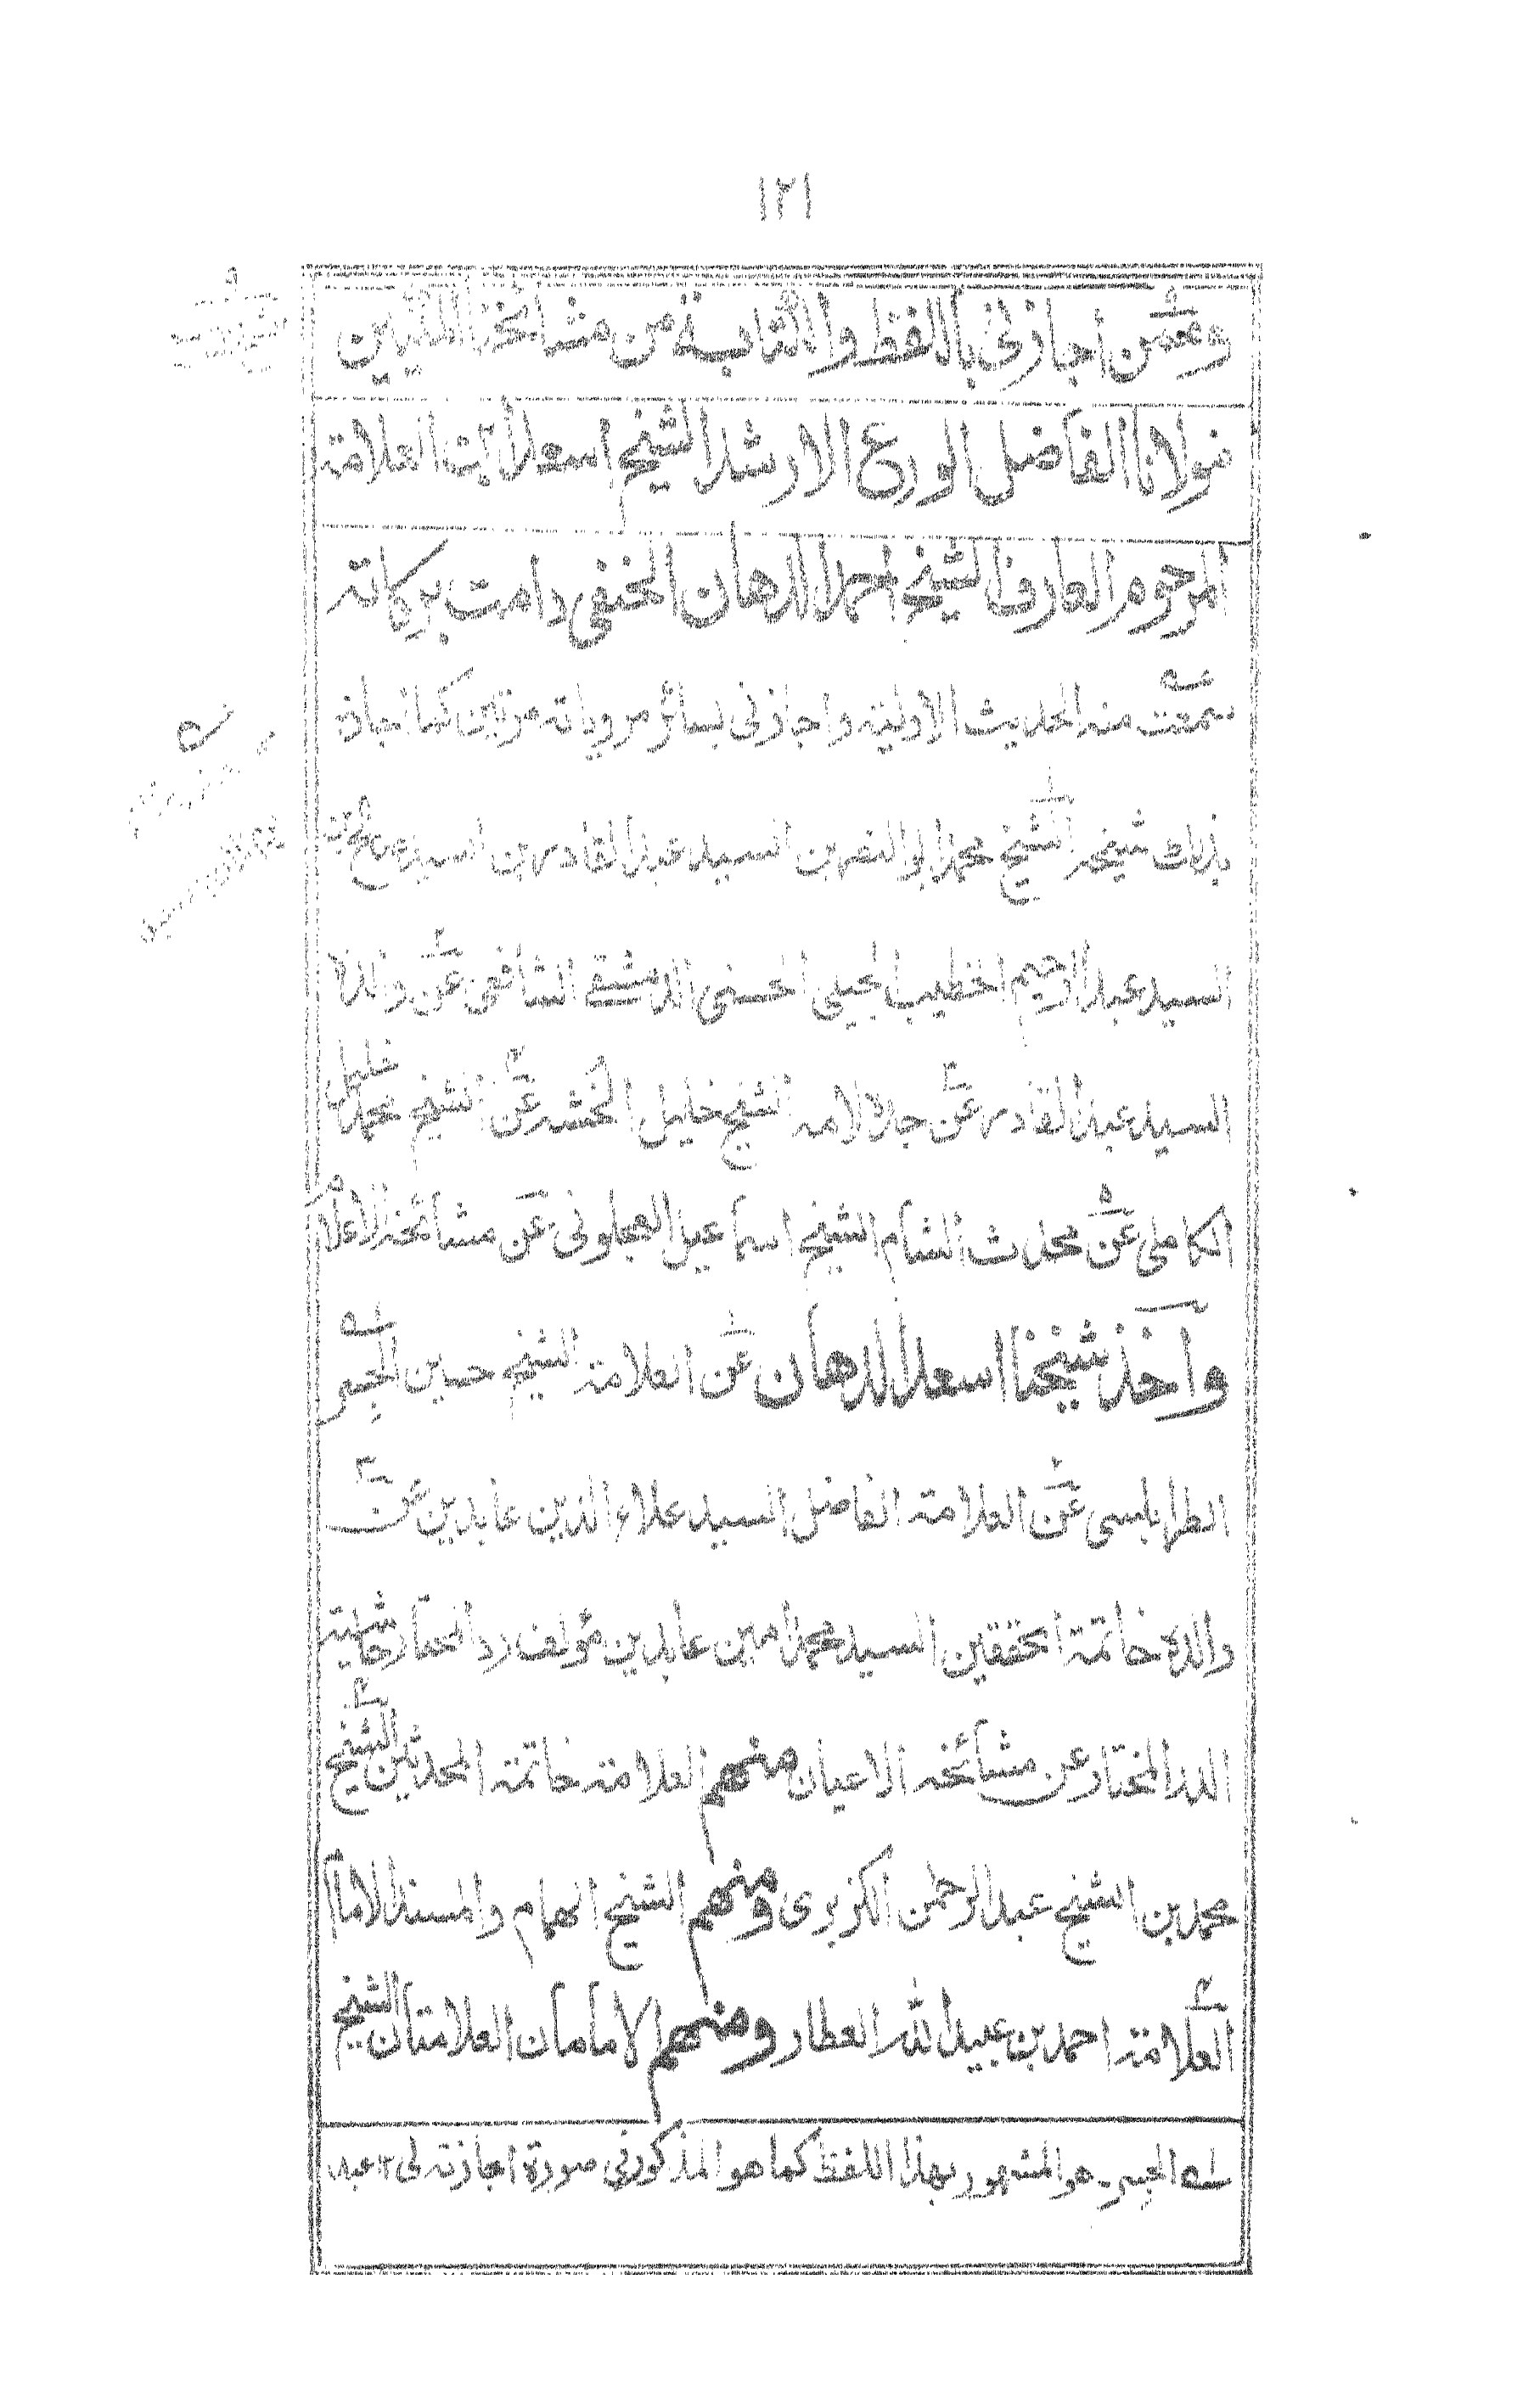 ١٢١
وممن أجازني باللفظ والكتابة من مشائخنا المكيين
مولانا الفاضل الورع الارشد الشيخ اسعد ابن العلامة
المرحوم العارف الشيخ احمد الدهان الحنفى دامت بركاته
سمعت منه الحديث الاولية واجازنى بسائر مروياته مرتين كما اجازه
بذلك شيخه الشيخ محمد ابو النصر بن السيد عبد القادر بن السيد صالح بن
السيد عبد الرحيم الخطيب الجيلى الحسنى الدمشقے الشافعى عن والده
السيد عبد القادر عن جده لامه الشيخ خليل الخشه عن الشيخ محمد خليل
الكاملى عن محدث الشام الشيخ اسماعيل العجلونى عن مشائخه الاعلام
وأخذ شيخنا اسعد الدهان عن العلامة الشيخ حسين الجسر
الطرابلسى عن العلامة الفاضل السيد علاء الدين عابدين عن
والده خاتمة المحققين السيد محمد امين عابدين مؤلف رد المحتار حاشية
الدر المختار عن مشائخه الاعيان منهم العلامة خاتمة المحدثين الشيخ
محمد بن الشيخ عبد الرحمن الكزبرى ومنهم الشيخ الهمام والمسند الامام
العلامة احمد بن عبيد الله العطار ومنهم الامامان العلامتان الشيخ
له الجسر ـ هو المشهور بهذا اللفظ كما هو المذكور في صورة اجازته لى ١٢